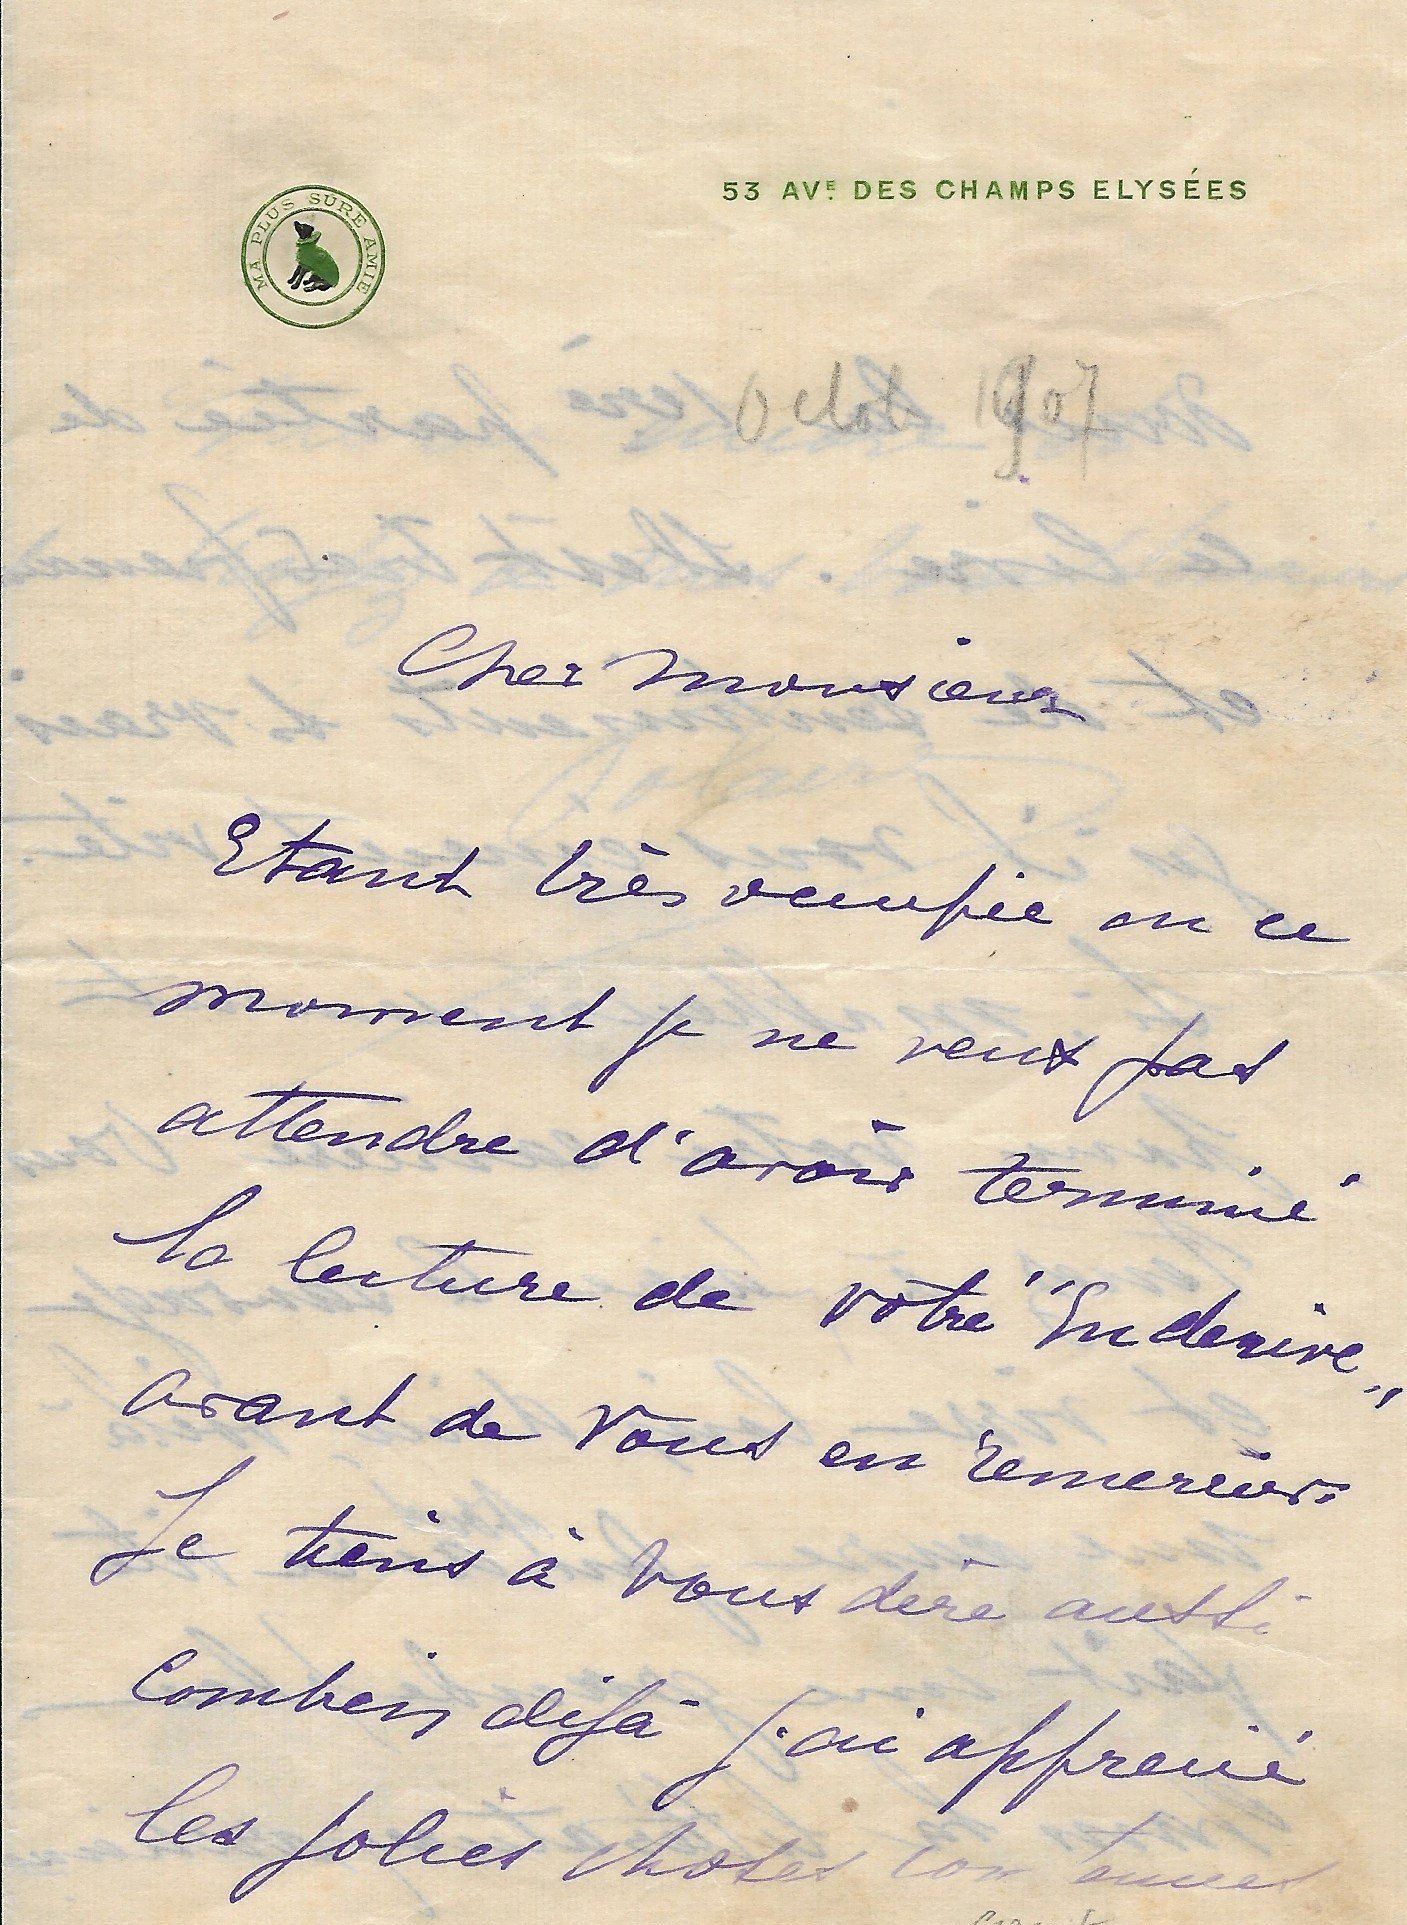 53 AVE. DES CHAMPS ELYSÉES
MA PLUS SURE AMIE
Octob 1907
Cher Monsieur
Etant très occupée en ce
moment je ne veux pas
attendre d'avoir terminé
la lecture de votre "En derive„
avant de vous en remercier.
Je tiens à vous dire aussi
combien déjà j'ai apprecié
les jolies choses contenues